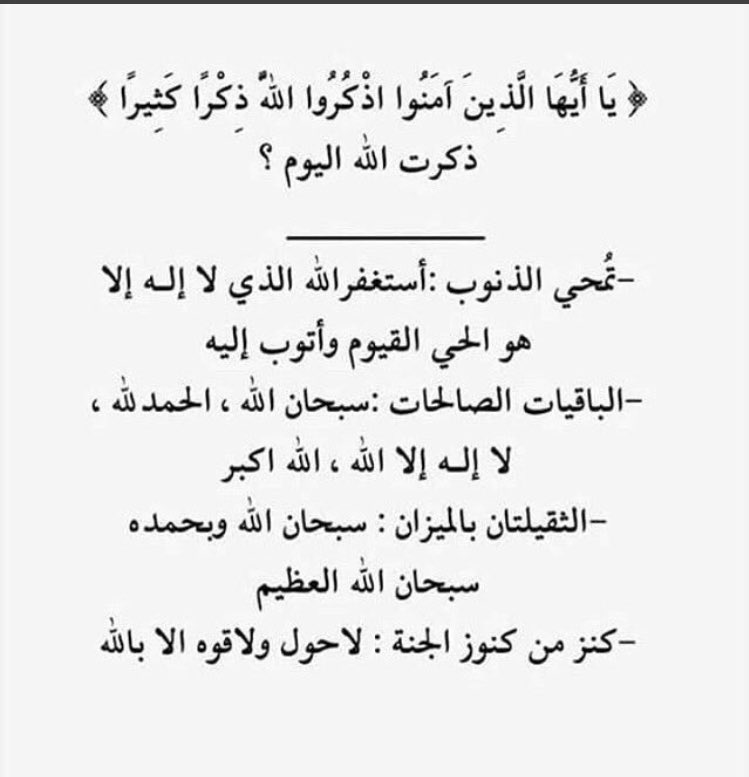 ﴿ يَا أَيُّهَا الَّذِينَ آمَنُوا اذْكُرُوا اللَّهَ ذِكْرًا كَثِيرًا ﴾
ذكرت الله اليوم ؟
-تُمحي الذنوب :أستغفرالله الذي لا إله إلا
هو الحي القيوم وأتوب إليه
-الباقيات الصالحات :سبحان الله ، الحمدلله ،
لا إله إلا الله ، الله اكبر
-الثقيلتان بالميزان : سبحان الله وبحمده
سبحان الله العظيم
-كنز من كنوز الجنة : لاحول ولاقوه الا بالله